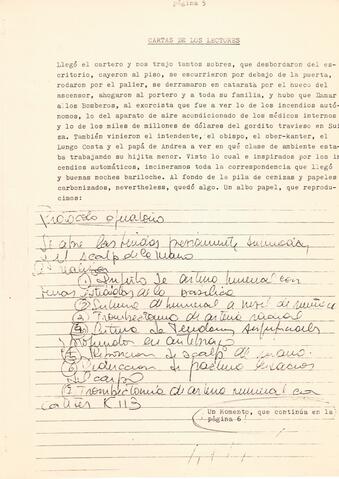 página 5
CARTAS DE LOS LECTORES
Llegó el cartero y nos trajo tantos sobres, que desbordaron del es-
critorio, cayeron al piso, se escurrieron por debajo de la puerta,
rodaron por el palier, se derramaron en catarata por el hueco del
ascensor, ahogaron al portero y a toda su familia, y hubo que llamar
a los Bomberos, al exorcista que fue a ver lo de los incendios autó-
nomos, lo del aparato de aire acondicionado de los médicos internos
y lo de los miles de millones de dólares del gordito travieso en Sui
za. También vinieron el intendente, el obispo, el ober-kanter, el
Lungo Costa y el papá de Andrea a ver en qué clase de ambiente esta-
ba trabajando su hijita menor. Visto lo cual e inspirados por los in
cendios automáticos, incineramos toda la correspondencia que llegó
y buenas noches bariloche. Al fondo de la pila de cenizas y papeles
carbonizados, nevertheless, quedó algo. Un albo papel, que reprodu-
cimos:
Protocolo operatorio
Se abre las heridas previamente suturadas
del scalp de la mano
① de arteria humeral con
② humeral a nivel de
③ Trombectomía de arteria radial
④ Sutura de Tejidos superficiales
profundos en antebrazo
⑤ de scalp de mano.
⑥ Reducción de
del carpo
⑦ Trombectomía de arteria humeral con
K 113
Un Momento, que continúa en la
página 6